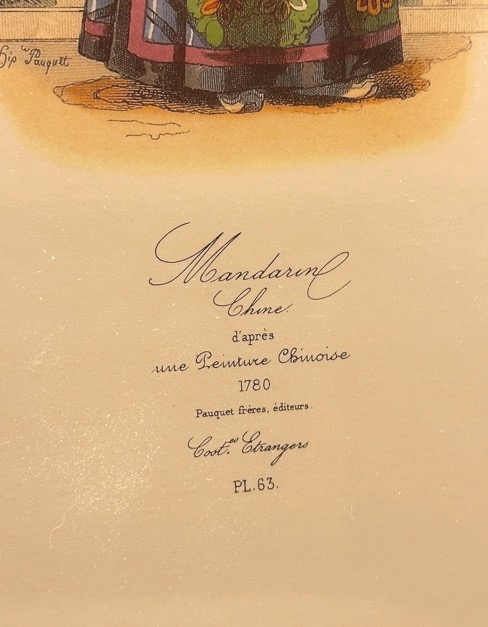 Hip te Pauquet
Mandarin
Chine.
d'après
une Peinture Chinoise
1780
Pauquet frères, éditeurs.
Cost.es Etrangers
PL.63.